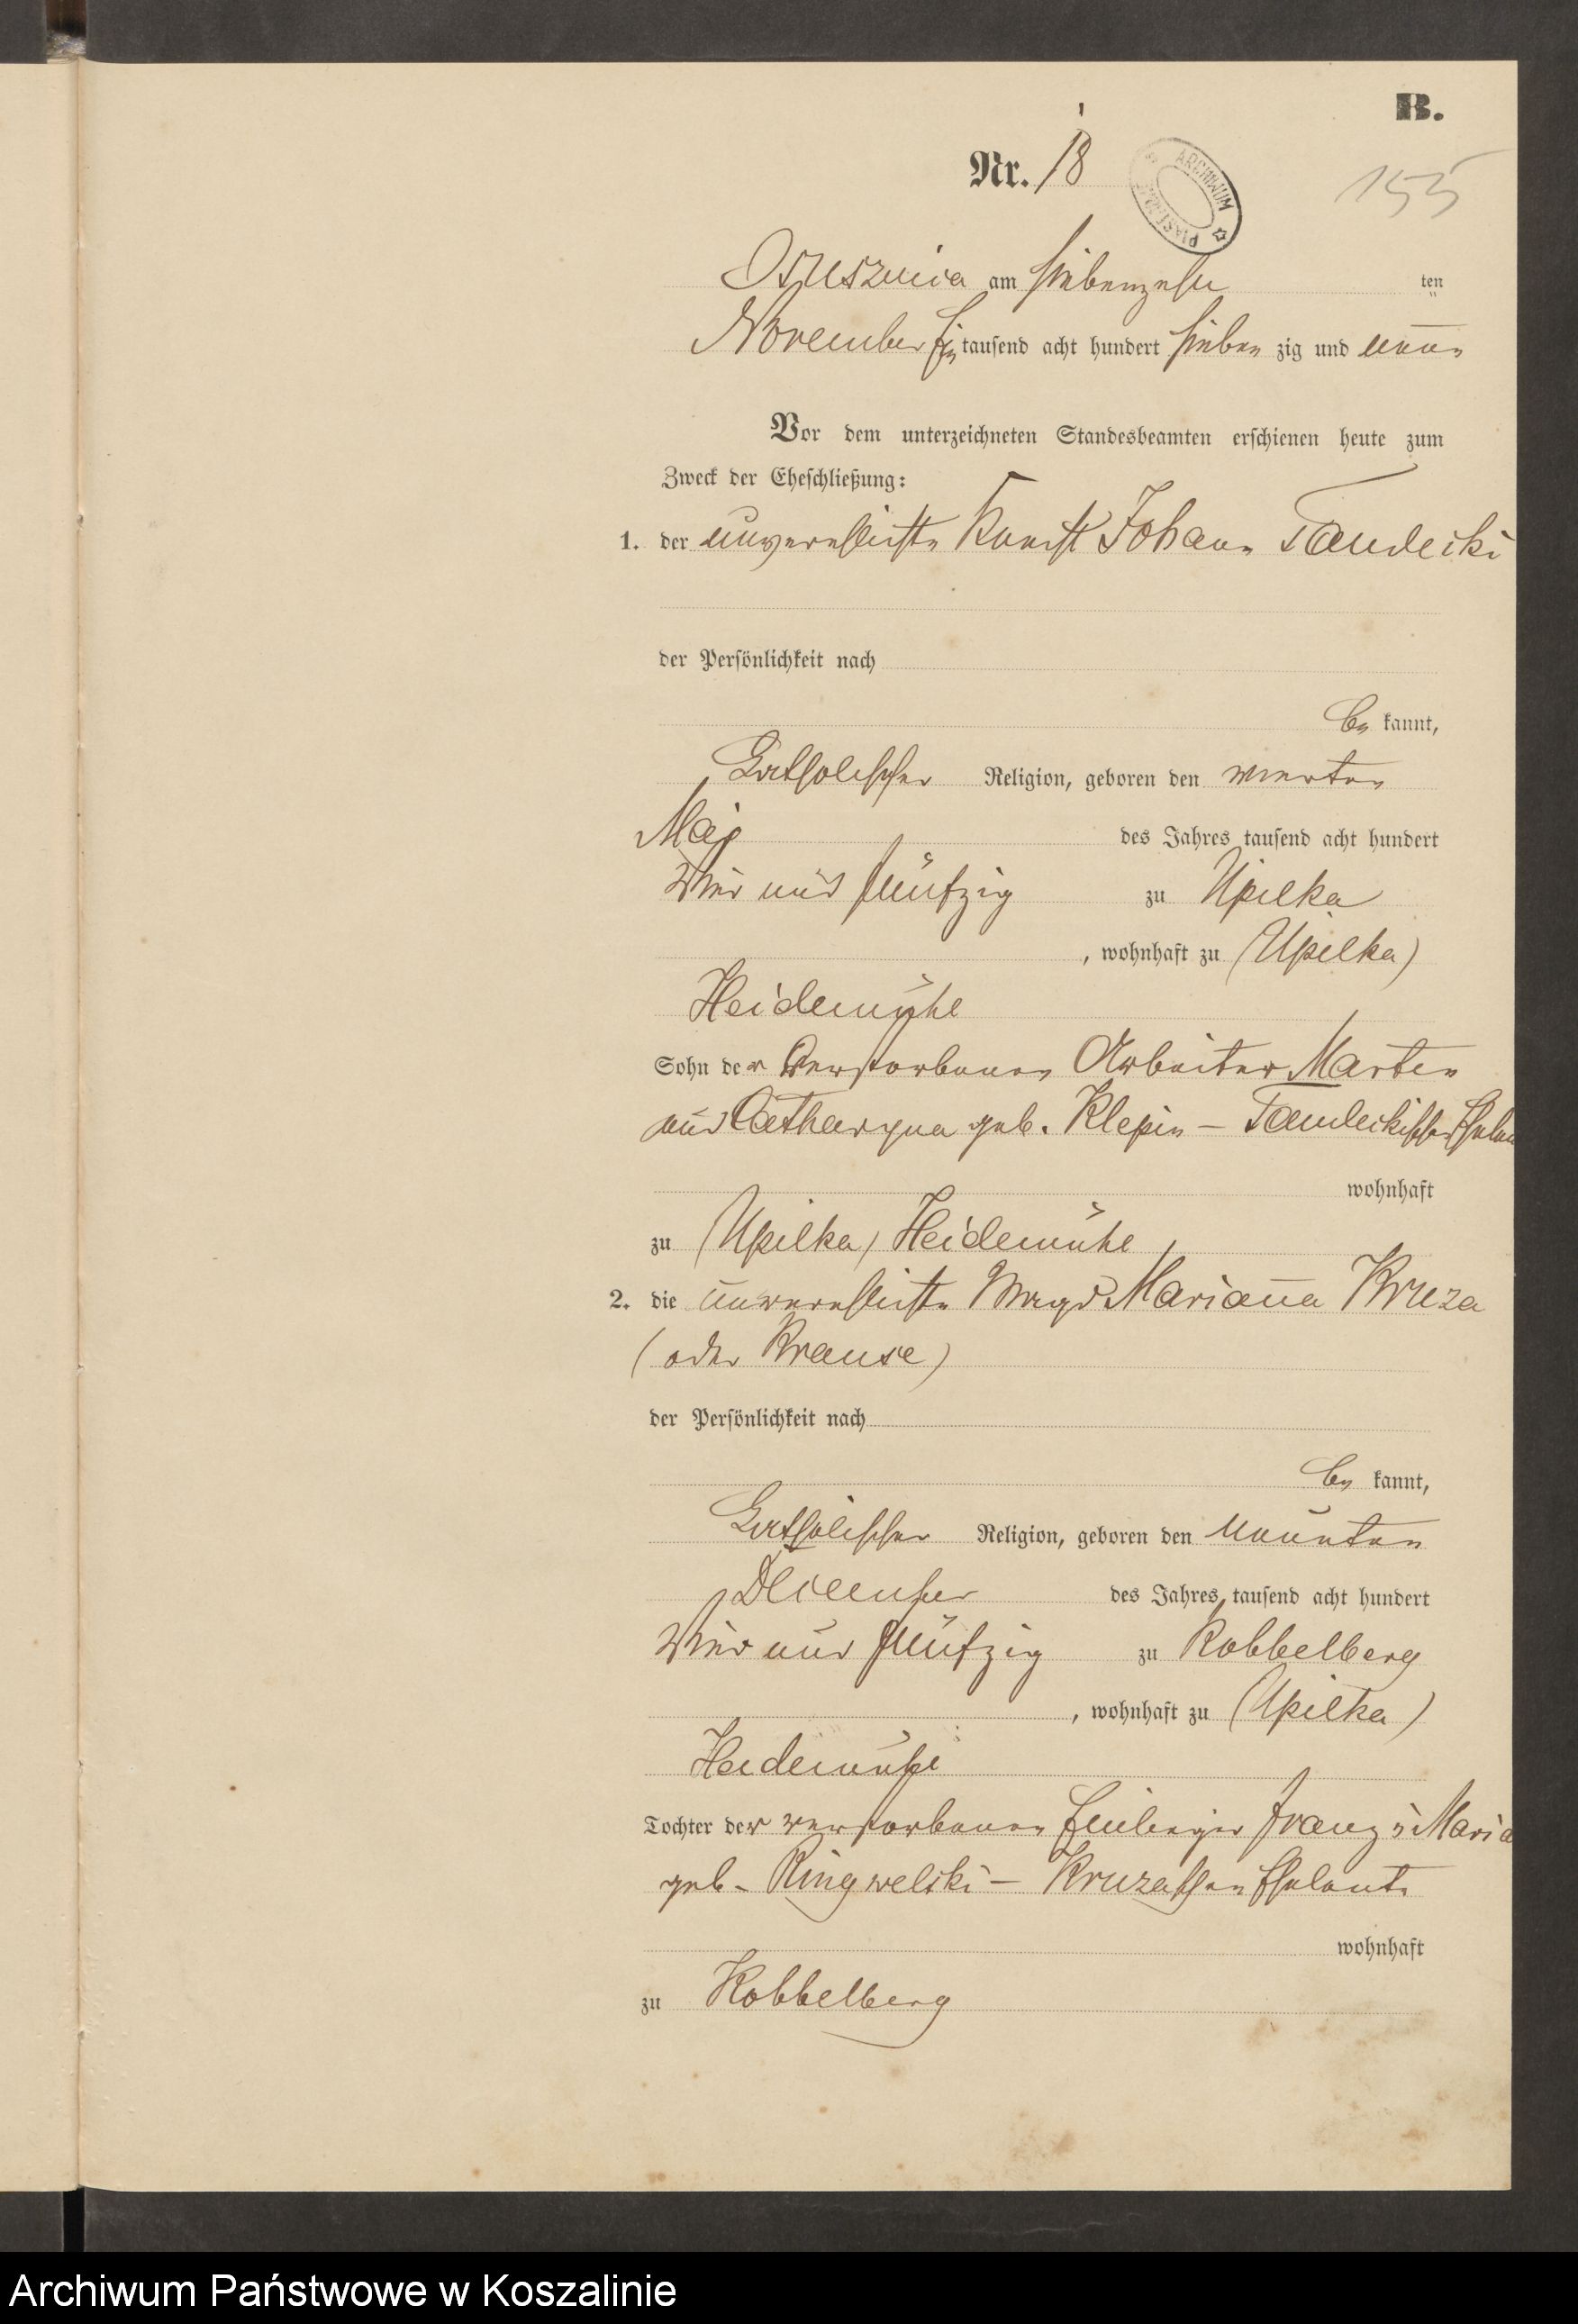 B.
Nr. 18
155
ARCHIWUM
Osusznica am siebenzehn ten
November Ein tausend acht hundert sieben zig und neun
Vor dem unterzeichneten Standesbeamten erschienen heute zum
Zweck der Eheschließung:
1. der unverehlichte Knecht Johann Tandecki
der Persönlichkeit nach
be kannt,
Katholischer Religion, geboren den vierten
Mai des Jahres tausend acht hundert
vier und fünfzig zu Upilka
, wohnhaft zu (Upilka)
Heidemühl
Sohn der verstorbenen Arbeiter Martin
und Catharyna geb. Klepin – Tandeckischen
wohnhaft
zu (Upilka) Heidemühl
2. die unverehlichte Magd Marianna Kruza
(oder Krause)
der Persönlichkeit nach
be kannt,
Katholischer Religion, geboren den neunten
Dezember des Jahres tausend acht hundert
vier und fünfzig zu Kobbelberg
, wohnhaft zu (Upilka)
Heidemühl
Tochter der verstorbenen Franz u Maria
geb. Ringwelski – Kruzaschen Eheleute
wohnhaft
zu Kobbelberg
Archiwum Państwowe w Koszalinie